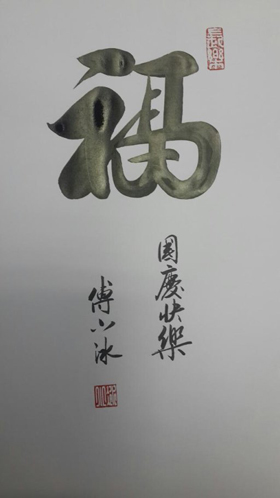 福
國慶快樂
傅小冰